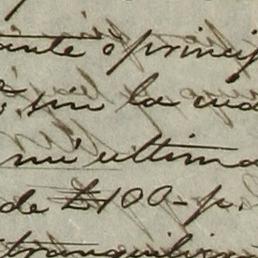 ante ó princip
sin la cua
mi ultima
de £100-p.
tranquilizar